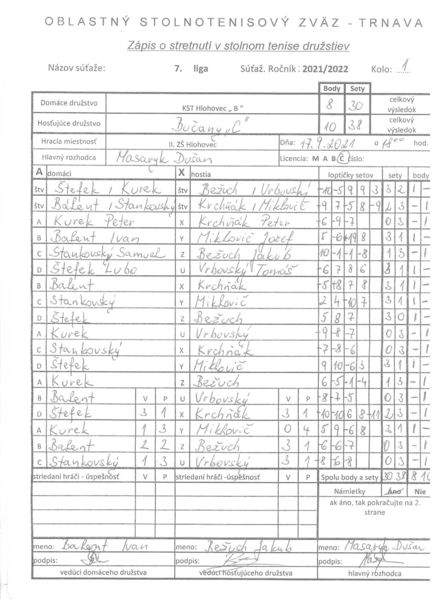 OBLASTNÝ STOLNOTENISOVÝ ZVÄZ - TRNAVA
Zápis o stretnutí v stolnom tenise družstiev
Názov súťaže: 7. liga Súťaž. Ročník: 2021/2022 Kolo: 1
Body Sety
Domáce družstvo KST Hlohovec „B" 8 30 celkový výsledok
Hosťujúce družstvo Bučany „C" 10 38 celkový výsledok
Hracia miestnosť II. ZŠ Hlohovec Dňa: 17.9.2021 o 18⁰⁰ hod.
Hlavný rozhodca Masaryk Dušan Licencia: M A B C číslo:
A domáci X hostia loptičky setov sety body
štv Štefek / Kurek štv Bežuch / Urbovský -10 -5 9 9 3 3 2 1 -
štv Balent / Stankovský štv Krchňák / Miklovič -9 7 -5 8 -9 2 3 - 1
A Kurek Peter X Krchňák Peter -6 -9 -7 0 3 - 1
B Balent Ivan Y Miklovič Jozef 3 1 1 -
C Stankovský Samuel Z Bežuch Jakub -10 -1 -8 1 3 - 1
D Štefek Ľubo U Urbovský Tomáš -6 7 8 6 3 1 1 -
B Balent X Krchňák -5 8 7 8 3 1 1 -
C Stankovský Y Miklovič 2 4 -10 7 3 1 1 -
D Štefek Z Bežuch 5 8 7 3 0 1 -
A Kurek U Urbovský -9 -8 -7 0 3 - 1
C Stankovský X Krchňák -7 -8 -6 0 3 - 1
D Štefek Y Miklovič 9 10 -6 3 3 1 1 -
A Kurek Z Bežuch 6 -5 -1 -4 1 3 - 1
B Balent V P U Urbovský V P -8 -7 -5 0 3 - 1
D Štefek 3 1 X Krchňák 3 1 -10 -10 6 8 -11 2 3 - 1
A Kurek 1 3 Y Miklovič 0 4 5 9 -6 8 3 1 1 -
B Balent 2 2 Z Bežuch 3 1 -6 -6 -7 0 3 - 1
C Stankovský 1 3 U Urbovský 3 1 -8 -6 -8 0 3 - 1
striedaní hráči - úspešnosť V P striedaní hráči - úspešnosť V P Spolu body a sety 30 38 8 10
Námietky Áno Nie
ak áno, tak pokračujte na 2. strane
meno: Balent Ivan meno: Bežuch Jakub meno: Masaryk Dušan
podpis: podpis: podpis:
vedúci domáceho družstva vedúci hosťujúceho družstva hlavný rozhodca